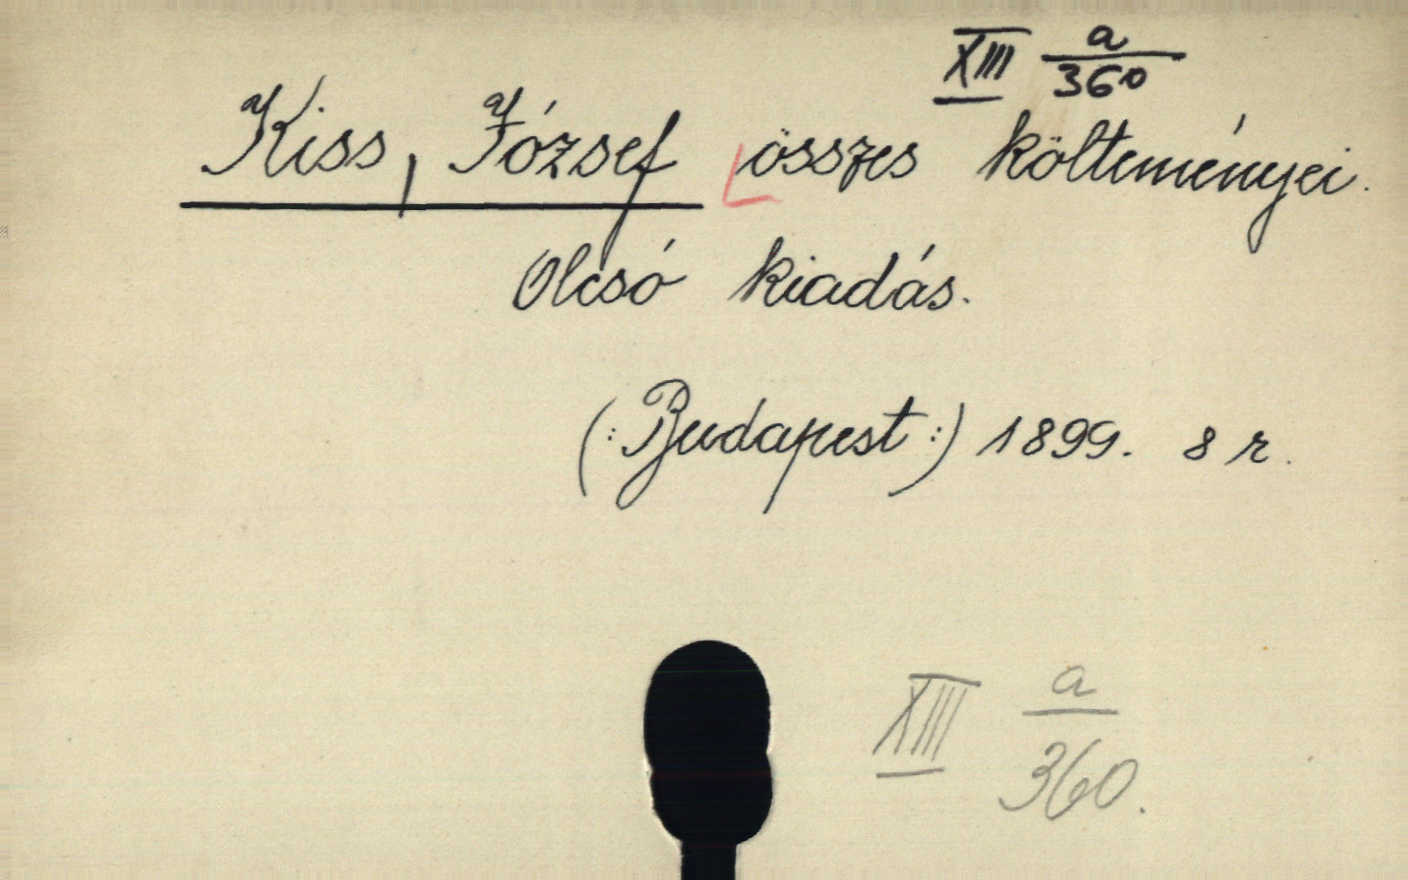 XIII a/360
Kiss, József összes költeményei.
Olcsó kiadás.
(: Budapest :) 1899. 8 r.
XIII a/360.